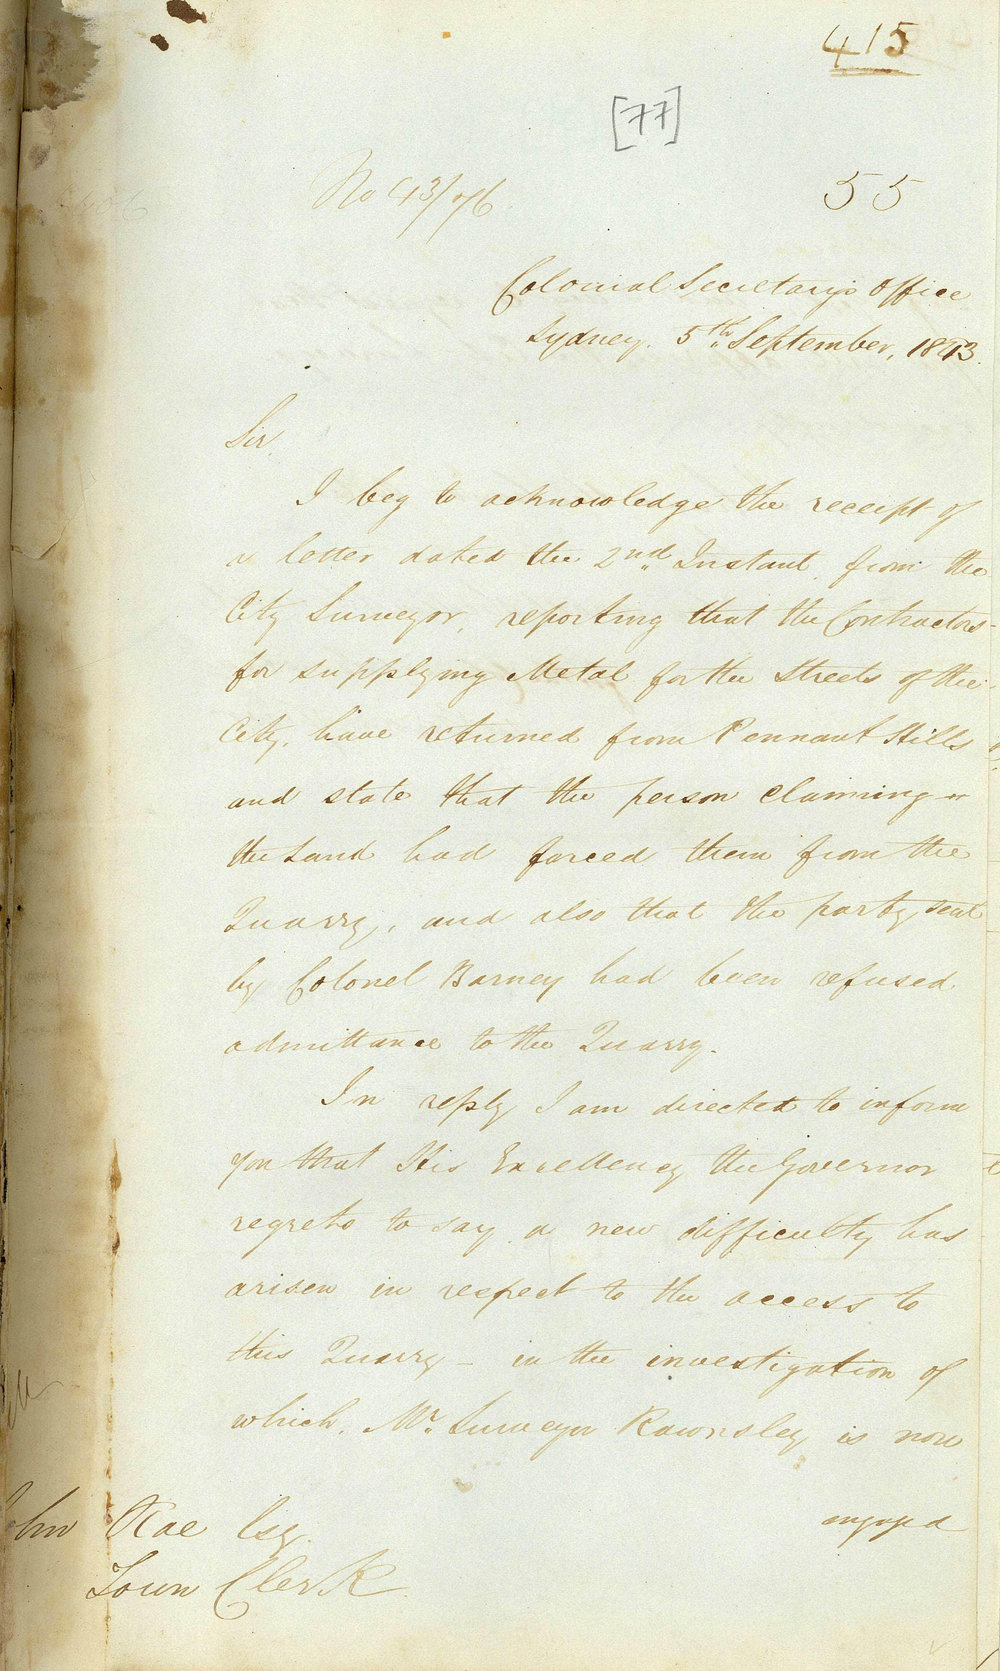 415
[77]
No 43/76
55
Colonial Secretary's Office
Sydney. 5th September, 1843.
Sir,
I beg to acknowledge the receipt of
a letter dated the 2nd Instant, from the
City Surveyor, reporting that the Contractors
for supplying Metal for the Streets of the
City, have returned from Pennant Hills
and state that the person claiming
the Land had forced them from the
Quarry, and also that the party sent
by Colonel Barney had been refused
admittance to the Quarry.
In reply I am directed to inform
you that His Excellency the Governor
regrets to say a new difficulty has
arisen in respect to the access to
this Quarry – in the investigation of
which, Mr. Surveyor Rawnsley is now
engaged
John Rae Esq.
Town Clerk